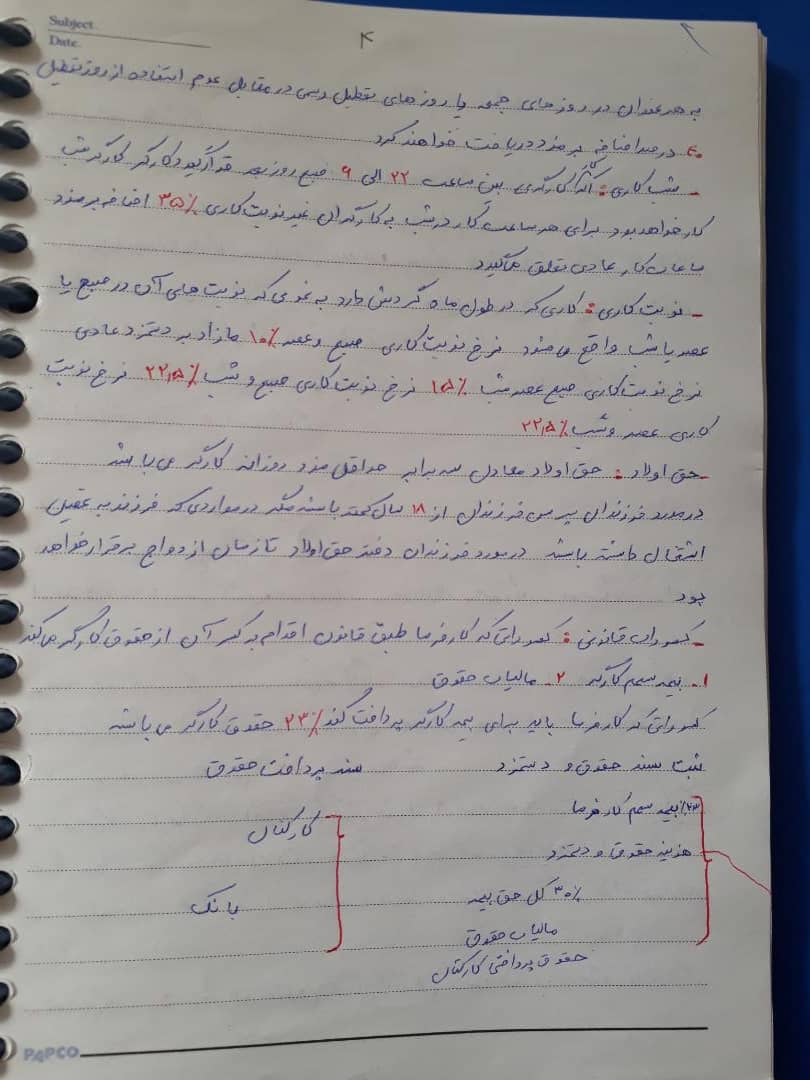 Subject
Date
۴
به هر عنوان در روزهای جمعه یا روزهای تعطیل رسمی در مقابل عدم استفاده از روز تعطیل
۴۰ درصد اضافه بر مزد دریافت خواهند کرد
- شب کاری : اگر کار کارگری بین ساعت ۲۲ الی ۶ صبح روز بعد قرار گیرد کارگر کارگر شب
کار خواهد بود برای هر ساعت کار در شب به کارگران غیر نوبت کاری ۳۵٪ اضافه بر مزد
ساعات کار عادی تعلق میگیرد
- نوبت کاری : کاری که در طول ماه گردش دارد به نحوی که نوبت های آن در صبح یا
عصر یا شب واقع می شود نرخ نوبت کاری صبح و عصر ۱۰٪ مازاد بر دستمزد عادی
نرخ نوبت کاری صبح عصر شب ۱۵٪ نرخ نوبت کاری صبح و شب ۲۲٫۵٪ نرخ نوبت
کاری عصر و شب ۲۲٫۵٪
- حق اولاد : حق اولاد معادل سه برابر حداقل مزد روزانه کارگر می باشد
در مورد فرزندان پسر سن فرزندان از ۱۸ سال کمتر باشد مگر در مواردی که فرزند به تحصیل
اشتغال داشته باشد در مورد فرزندان دختر حق اولاد تا زمان ازدواج برقرار خواهد
بود
- کسورات قانونی : کسوراتی که کارفرما طبق قانون اقدام به کسر آن از حقوق کارگر می کند
۱. بیمه سهم کارگر ۲. مالیات حقوق
کسوراتی که کارفرما باید برای بیمه کارگر پرداخت کند ۲۳٪ حقوق کارگر می باشد
ثبت سند حقوق و دستمزد سند پرداخت حقوق
۲۳٪ بیمه سهم کارفرما
کارکنان
هزینه حقوق و دستمزد
۳۰٪ کل حق بیمه
بانک
مالیات حقوق
حقوق پرداختی کارکنان
PAPCO